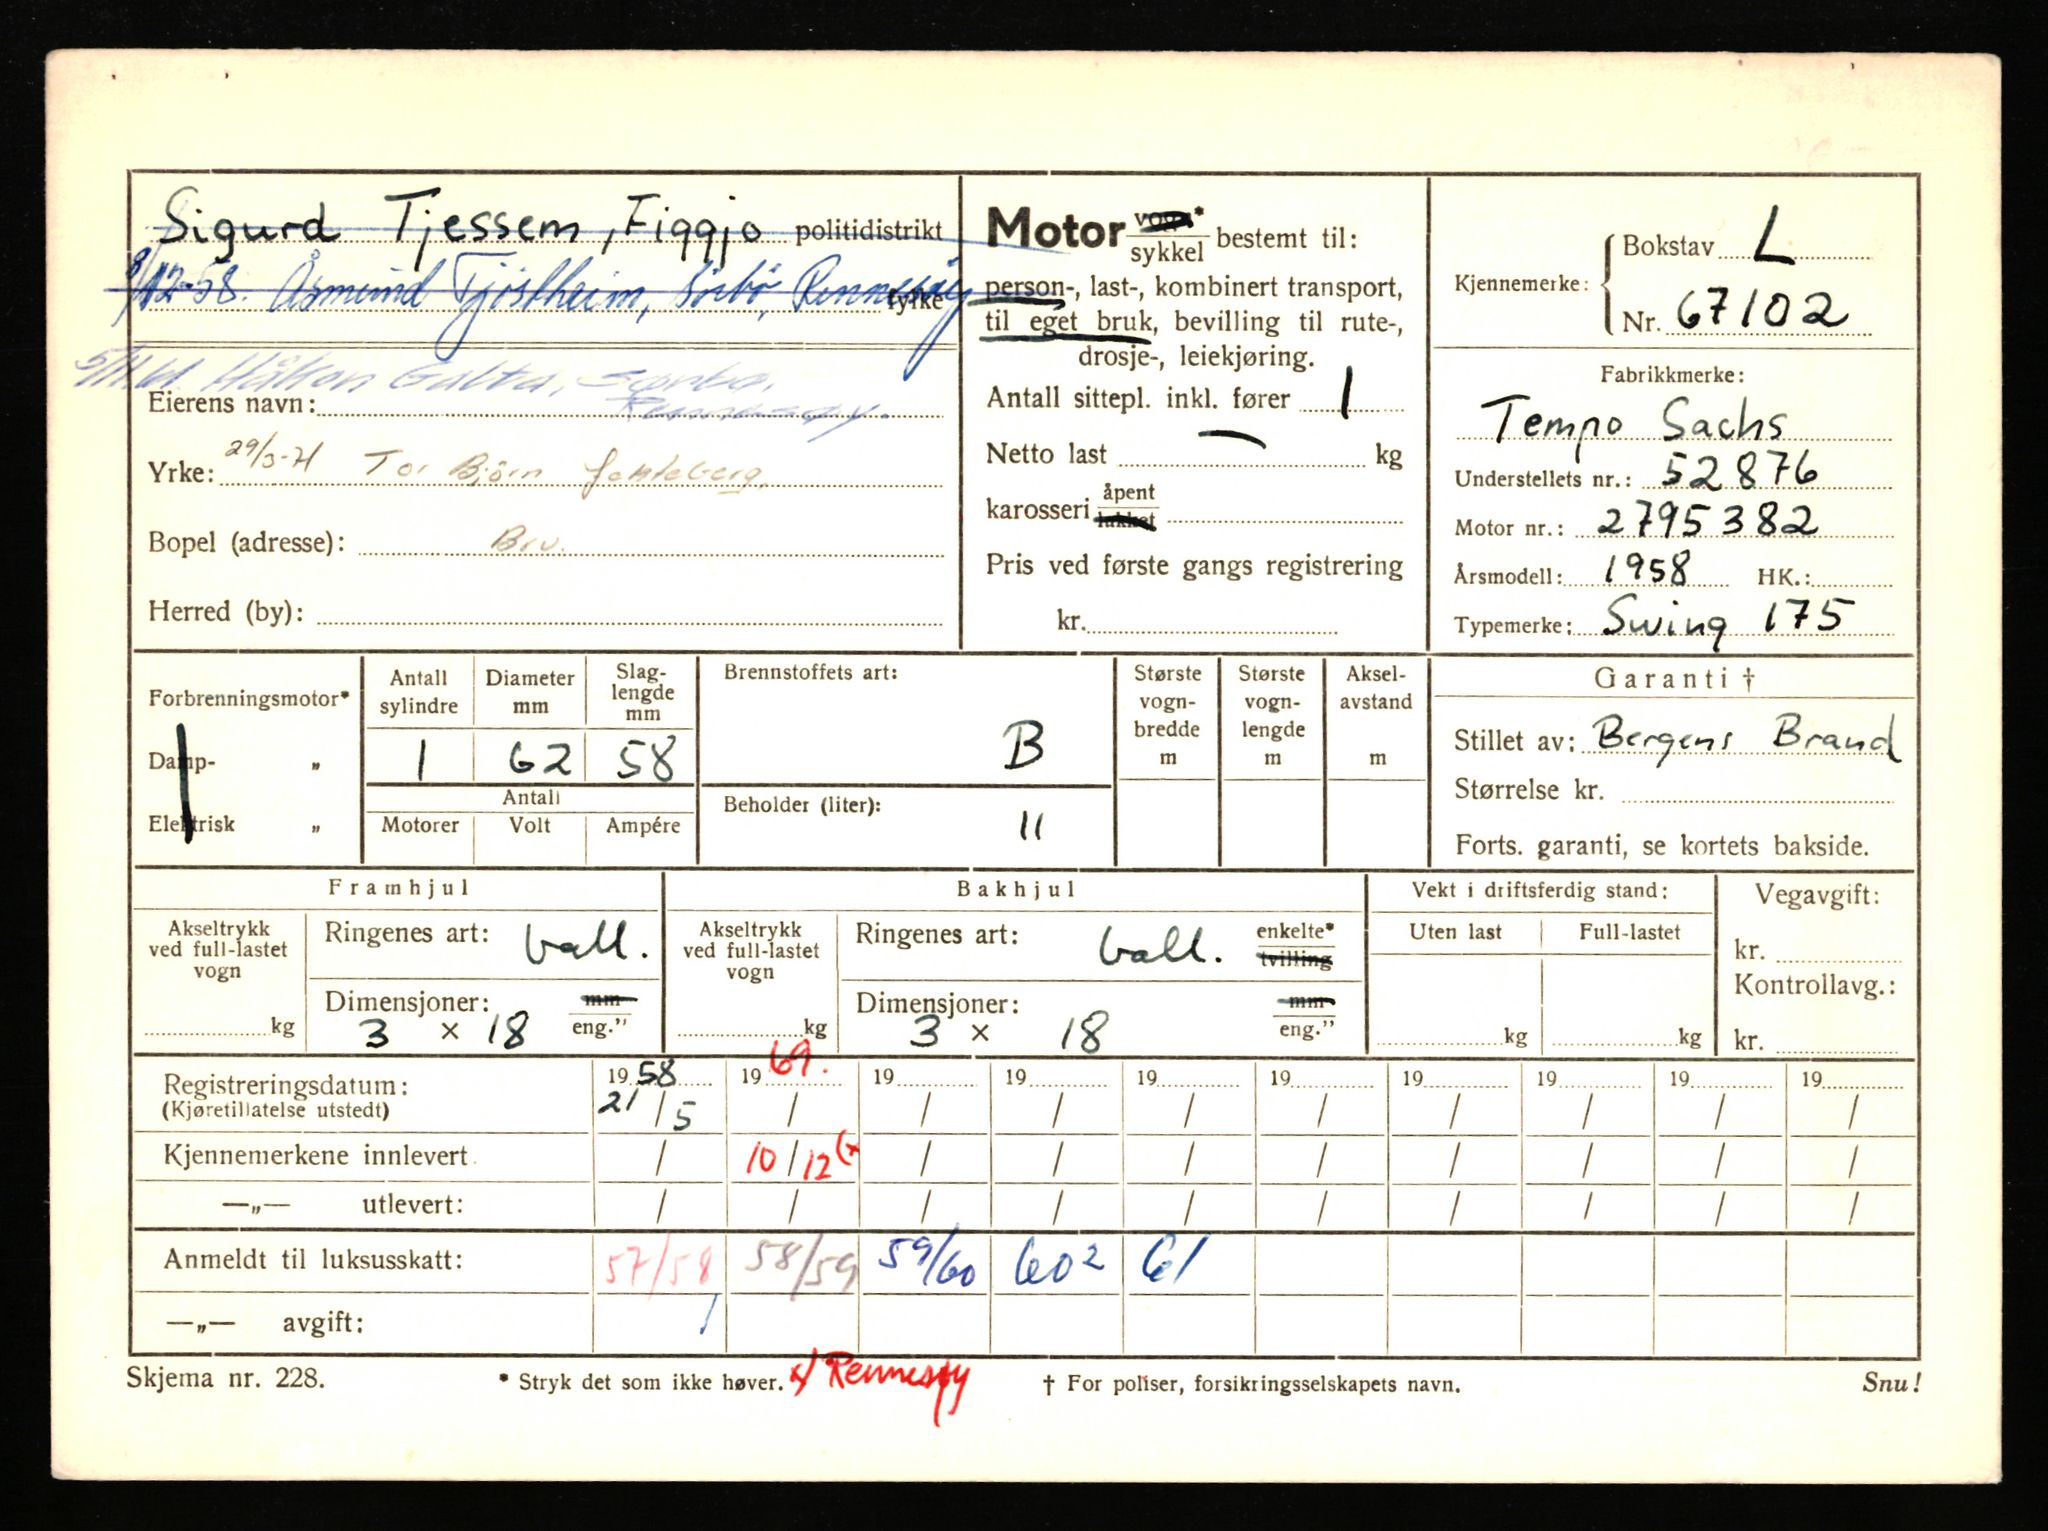 Sigurd Tjessem, Figgjo politidistrikt
8/12-58. Åsmund Tjöstheim, Sörbö, Rennesöy fylke
Håkon Galta, Sørbø,
Rennesøy.
Eierens navn:
Yrke: 29/3-71 Tor Björn
Bopel (adresse): Bru.
Herred (by):
Motor vogn* sykkel bestemt til:
person-, last-, kombinert transport,
til eget bruk, bevilling til rute-,
drosje-, leiekjøring.
Antall sittepl. inkl. fører 1
Netto last — kg
karosseri åpent lukket
Pris ved første gangs registrering
kr.
Kjennemerke: Bokstav L
Nr. 67102
Fabrikkmerke:
Tempo Sachs
Understellets nr.: 52876
Motor nr.: 2795382
Årsmodell: 1958 HK.:
Typemerke: Swing 175
Forbrenningsmotor*
Damp- „
Elektrisk „
Antall sylindre Diameter mm Slag-lengde mm
1 62 58
Antall
Motorer Volt Ampére
Brennstoffets art:
B
Beholder (liter):
11
Største vogn-bredde m
Største vogn-lengde m
Aksel-avstand m
Garanti †
Stillet av: Bergens Brand
Størrelse kr.
Forts. garanti, se kortets bakside.
Framhjul
Akseltrykk ved full-lastet vogn
kg
Ringenes art: ball.
Dimensjoner: mm
3 × 18 eng.”
Bakhjul
Akseltrykk ved full-lastet vogn
kg
Ringenes art: ball. enkelte* tvilling
Dimensjoner: mm
3 × 18 eng.”
Vekt i driftsferdig stand:
Uten last Full-lastet
kg kg
Vegavgift:
kr.
Kontrollavg.:
kr.
Registreringsdatum: 1958 1969. 19 19 19 19 19 19 19 19
(Kjøretillatelse utstedt) 21/5 / / / / / / / / /
Kjennemerkene innlevert / 10/12 (x / / / / / / / /
—„— utlevert: / / / / / / / / / /
Anmeldt til luksusskatt: 57/58 58/59 59/60 602 61
—„— avgift: /
Skjema nr. 228. * Stryk det som ikke høver. x/ Rennesøy † For poliser, forsikringsselskapets navn. Snu!